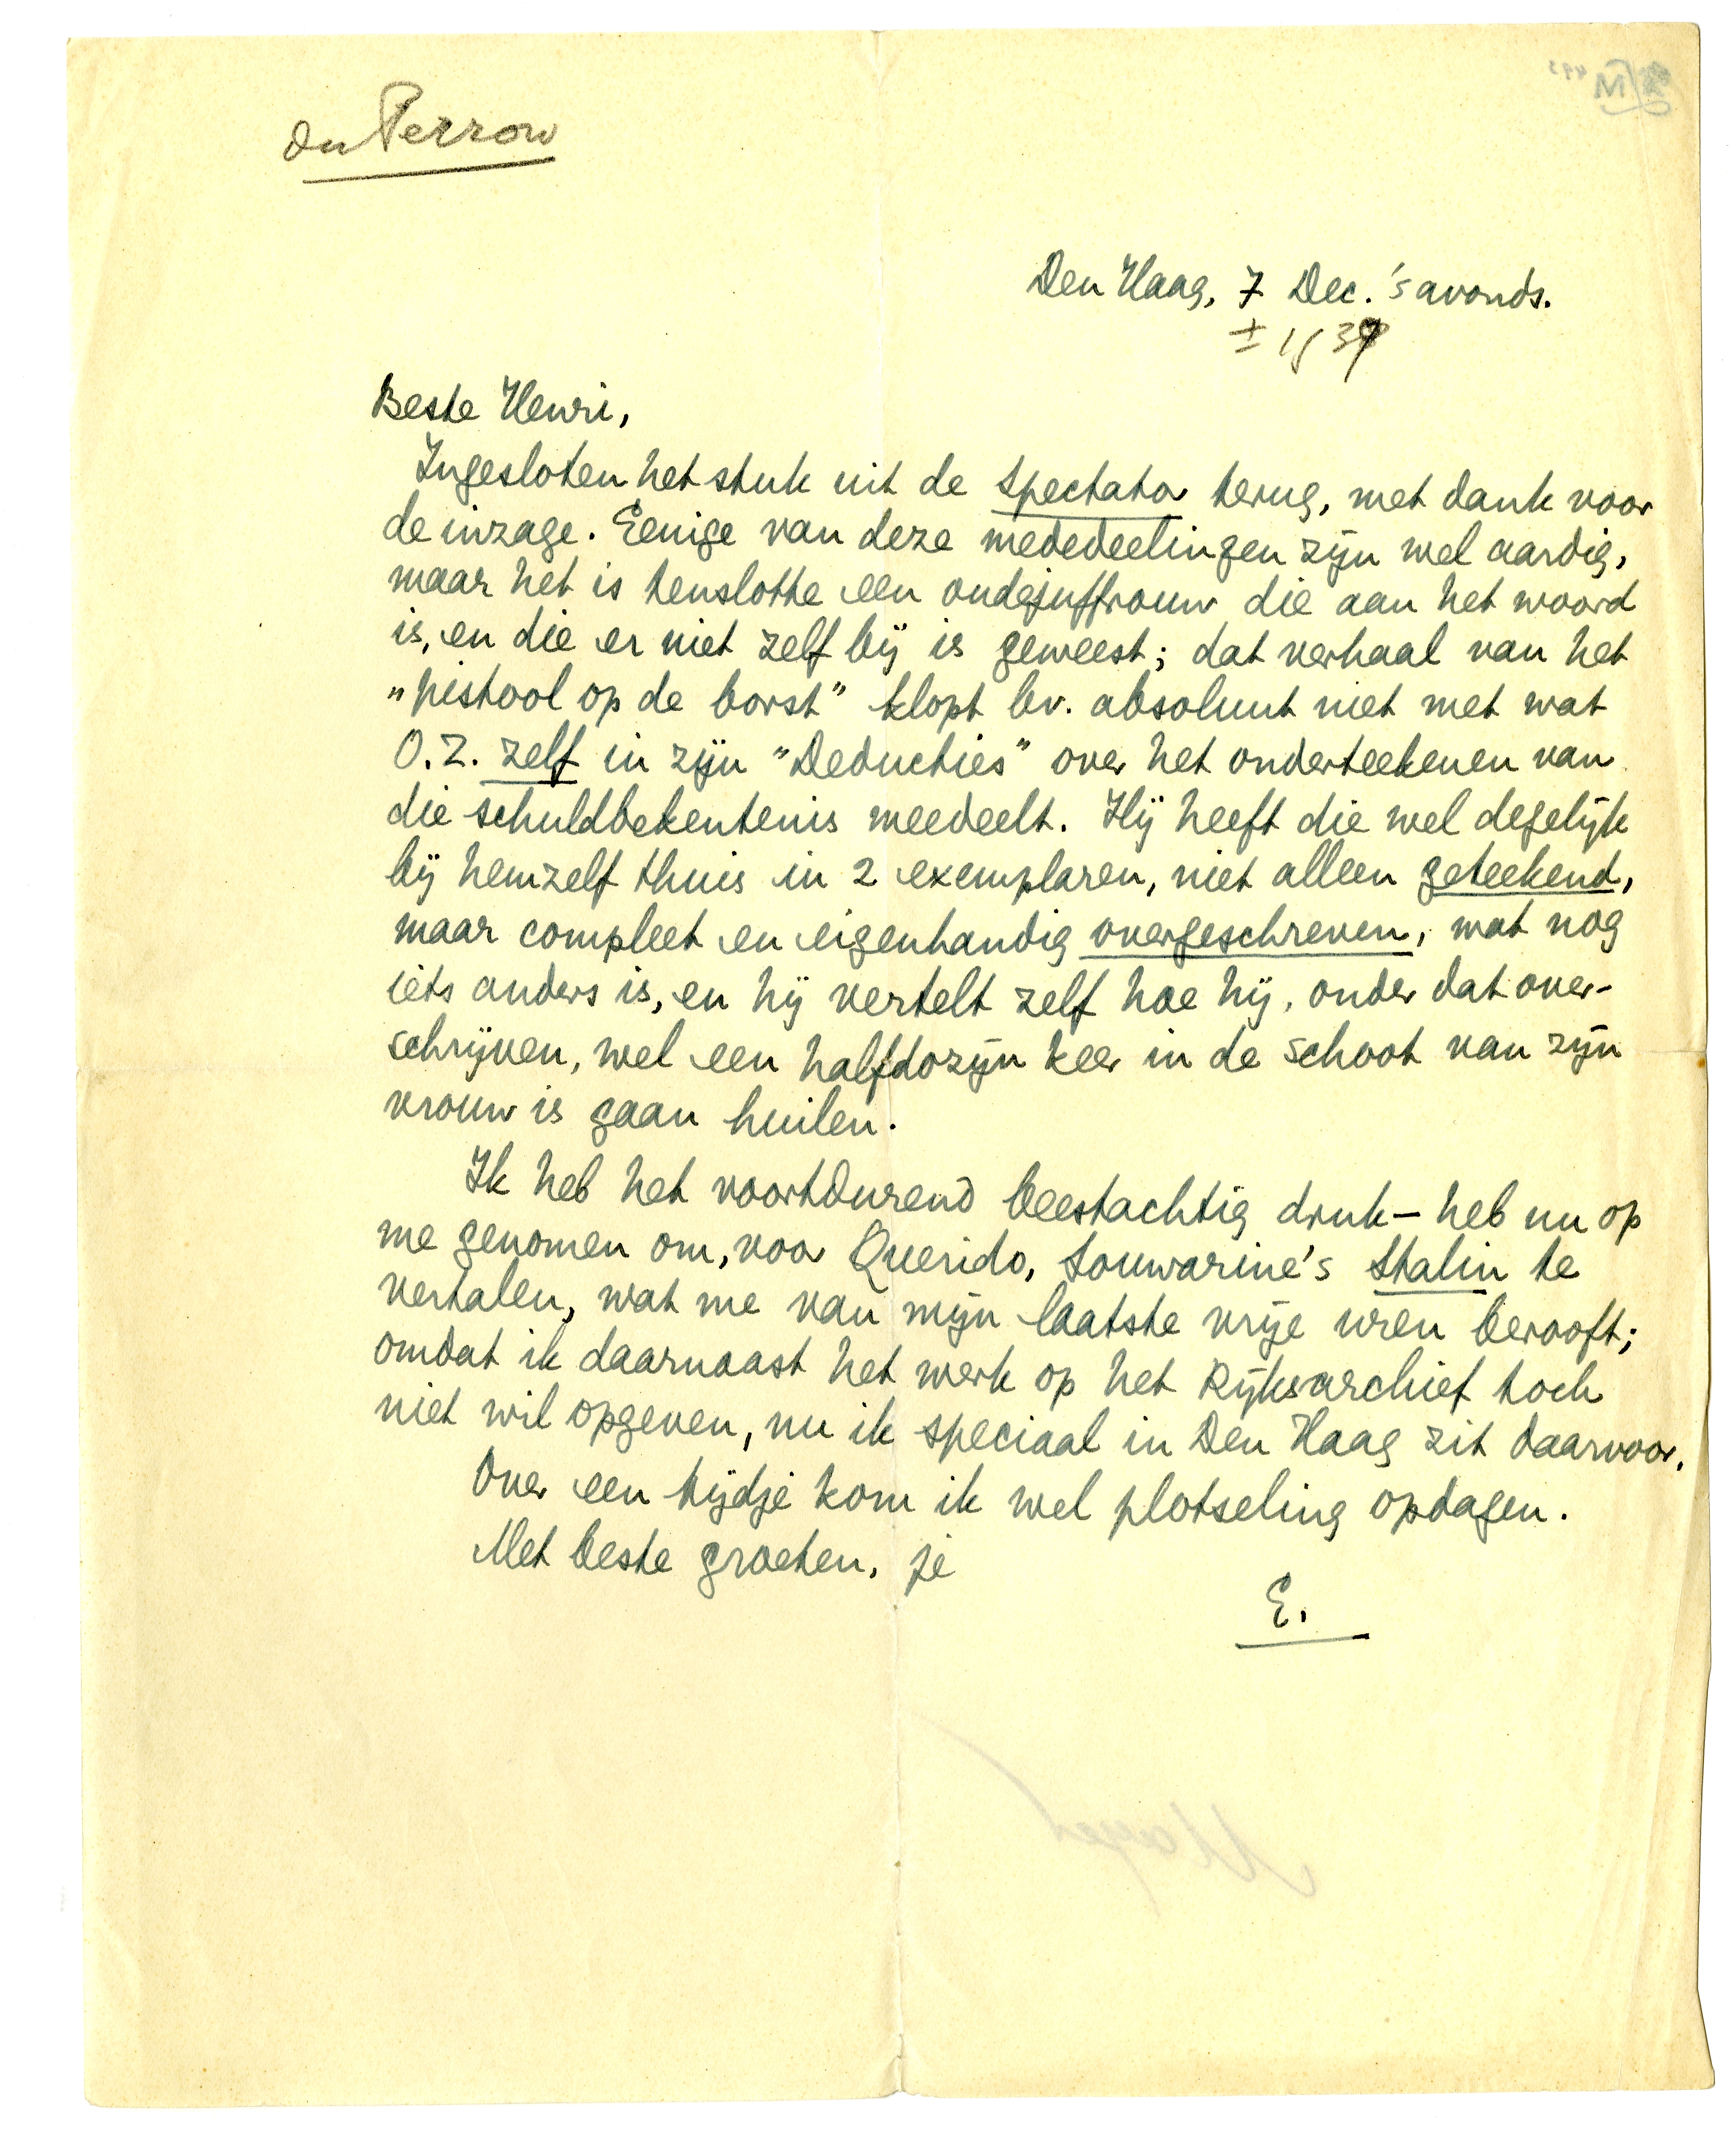 du Perron
Den Haag, 7 Dec. 's avonds.
± 1939
Beste Henri,
Ingesloten het stuk uit de Spectator terug, met dank voor
de inzage. Eenige van deze mededeelingen zijn wel aardig,
maar het is tenslotte een oudejuffrouw die aan het woord
is, en die er niet zelf bij is geweest; dat verhaal van het
„pistool op de borst” klopt bv. absoluut niet met wat
O.Z. zelf in zijn „Deducties” over het onderteekenen van
die schuldbekentenis meedeelt. Hij heeft die wel degelijk
bij hemzelf thuis in 2 exemplaren, niet alleen geteekend,
maar compleet en eigenhandig overgeschreven, wat nog
iets anders is, en hij vertelt zelf hoe hij, onder dat over-
schrijven, wel een halfdozijn keer in de schoot van zijn
vrouw is gaan huilen.
Ik heb het voortdurend beestachtig druk — heb nu op
me genomen om, voor Querido, Souwarine's Stalin te
vertalen, wat me van mijn laatste vrije uren berooft;
omdat ik daarnaast het werk op het Rijksarchief toch
niet wil opgeven, nu ik speciaal in Den Haag zit daarvoor.
Over een tijdje kom ik wel plotseling opdagen.
Met beste groeten, je
E.